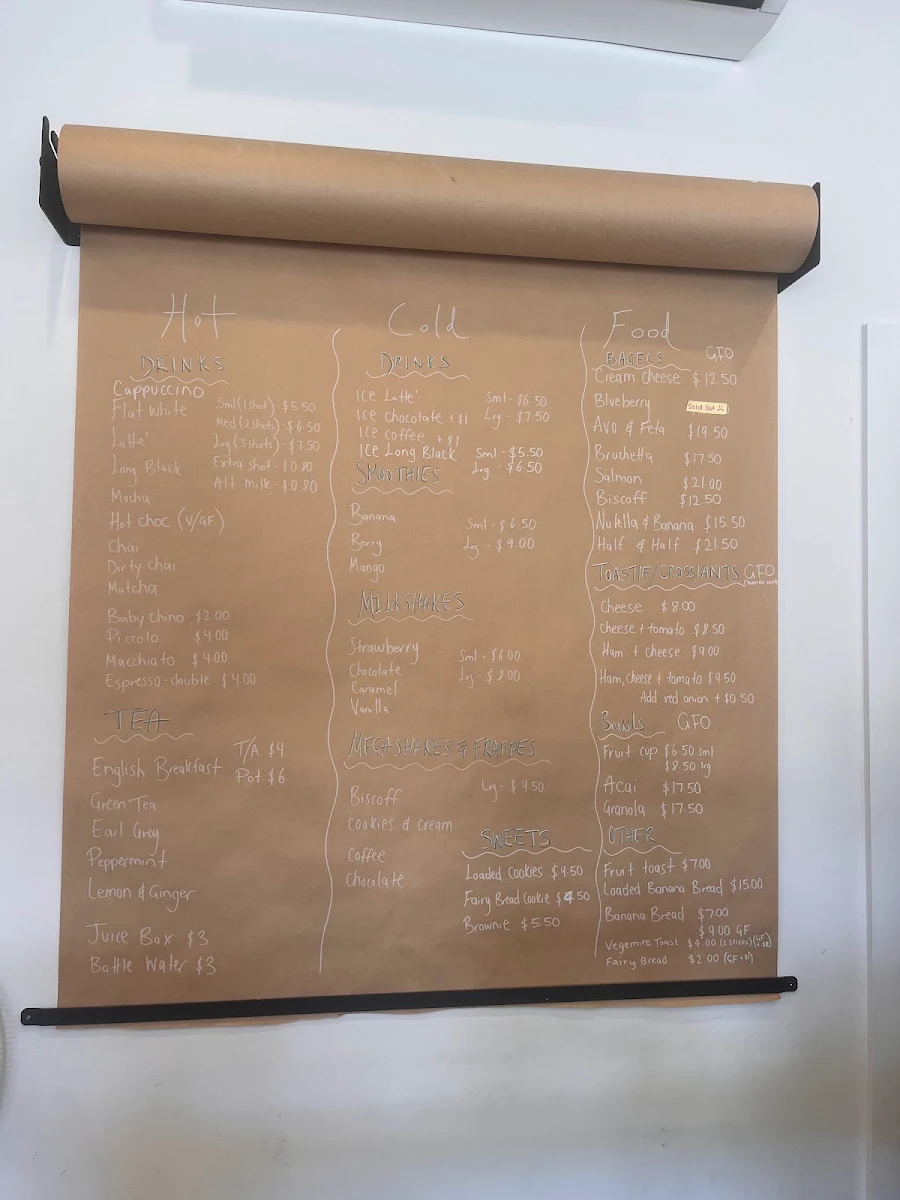 Hot
DRINKS
Cappuccino
Flat White Sml(1shot) - $5.50
Med(2shots) - $6.50
Latte' Lrg(3shots) - $7.50
Long Black Extra shot - $0.80
Alt milk - $0.80
Mocha
Hot choc (V/GF)
Chai
Dirty chai
Matcha
Baby chino $2.00
Piccolo $4.00
Macchiato $4.00
Espresso-double $4.00
TEA
T/A $4
English Breakfast Pot $6
Green Tea
Earl Grey
Peppermint
Lemon & Ginger
Juice Box $3
Bottle Water $3
Cold
DRINKS
ICE Latte' Sml - $6.50
ICE Chocolate +$1 Lrg - $7.50
ICE coffee +$1
ICE Long Black Sml - $5.50
Lrg - $6.50
SMOOTHIES
Banana Sml - $6.50
Berry Lrg - $9.00
Mango
MILKSHAKES
Strawberry Sml - $6.00
Chocolate Lrg - $8.00
Caramel
Vanilla
MEGASHAKES & FRAPPES
Biscoff Lrg - $9.50
Cookies & Cream
Coffee
Chocolate
SWEETS
Loaded Cookies $9.50
Fairy Bread Cookie $4.50
Brownie $5.50
Food
BAGELS GFO
Cream cheese $12.50
Blueberry Sold Out
Avo & Feta $19.50
Bruchetta $17.50
Salmon $21.00
Biscoff $12.50
Nutella & Banana $15.50
Half & Half $21.50
TOASTIE/CROSSIANTS GFO
Cheese $8.00
Cheese + tomato $8.50
Ham + cheese $9.00
Ham, cheese + tomato $9.50
Add red onion + $0.50
Bowls GFO
Fruit cup $6.50 sml
$8.50 lrg
Acai $17.50
Granola $17.50
OTHER
Fruit toast $7.00
Loaded Banana Bread $15.00
Banana Bread $7.00
$9.00 GF
Vegemite Toast $4.00 (2 slices)
Fairy Bread $2.00